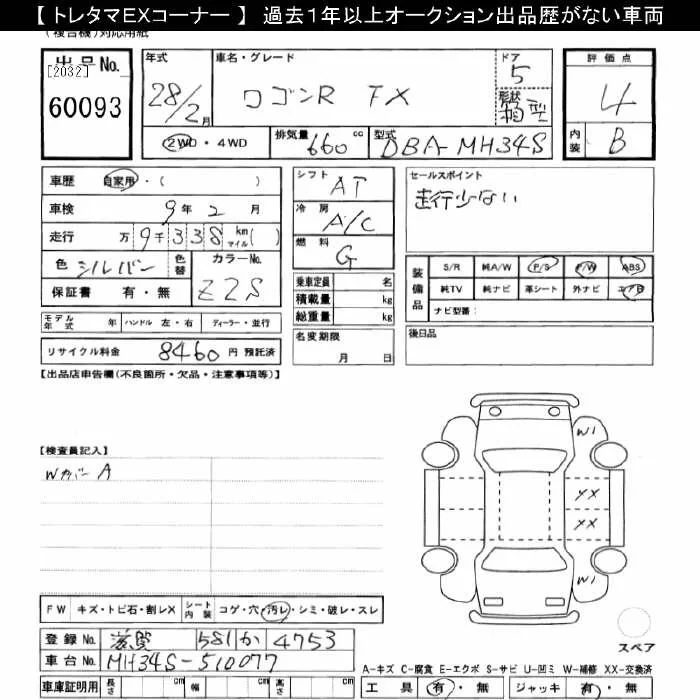 【 トレタマEXコーナー 】 過去1年以上オークション出品歴がない車両
(複合機)対応用紙
出品No. [2032] 60093
年式 28/2月
車名・グレード ワゴンR FX
ドア 5
形状 箱型
評価点 4
2WD・4WD
排気量 660 cc
型式 DBA-MH34S
内装 B
車歴 自家用・( )
車検 9年 2月
走行 万 9千 338 km マイル( )
色 シルバー 色替 カラーNo. Z2S
保証書 有・無
シフト AT
冷房 A/C
燃料 G
セールスポイント
走行少ない
乗車定員 名
積載量 kg
総重量 kg
装備品 S/R 純A/W P/S P/W ABS
純TV 純ナビ 革シート 外ナビ エアB
ナビ型番:
モデル年式 年 ハンドル 左・右 ディーラー・並行
名変期限 月 日
後日品
リサイクル料金 8460 円 預託済
【出品店申告欄(不良箇所・欠品・注意事項等)】
【検査員記入】
Wカバー A
W1
XX
XX
W1
FW キズ・トビ石・割レX シート内装 コゲ・穴・汚レ・シミ・破レ・スレ
スペア
登録No. 滋賀 581 か 4753
車台No. MH34S-510077
A-キズ C-腐食 E-エクボ S-サビ U-凹ミ W-補修 XX-交換済
車庫証明用 長さ cm 幅 cm 高さ cm
工具 有・無 ジャッキ 有・無